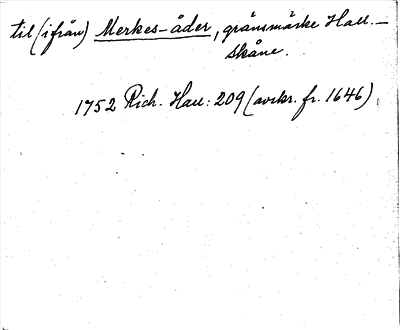 til (ifrån) Merkes-åder, gränsmärke Hall.–
Skåne.
1752 Rich. Hall: 209 (avskr. fr. 1646)